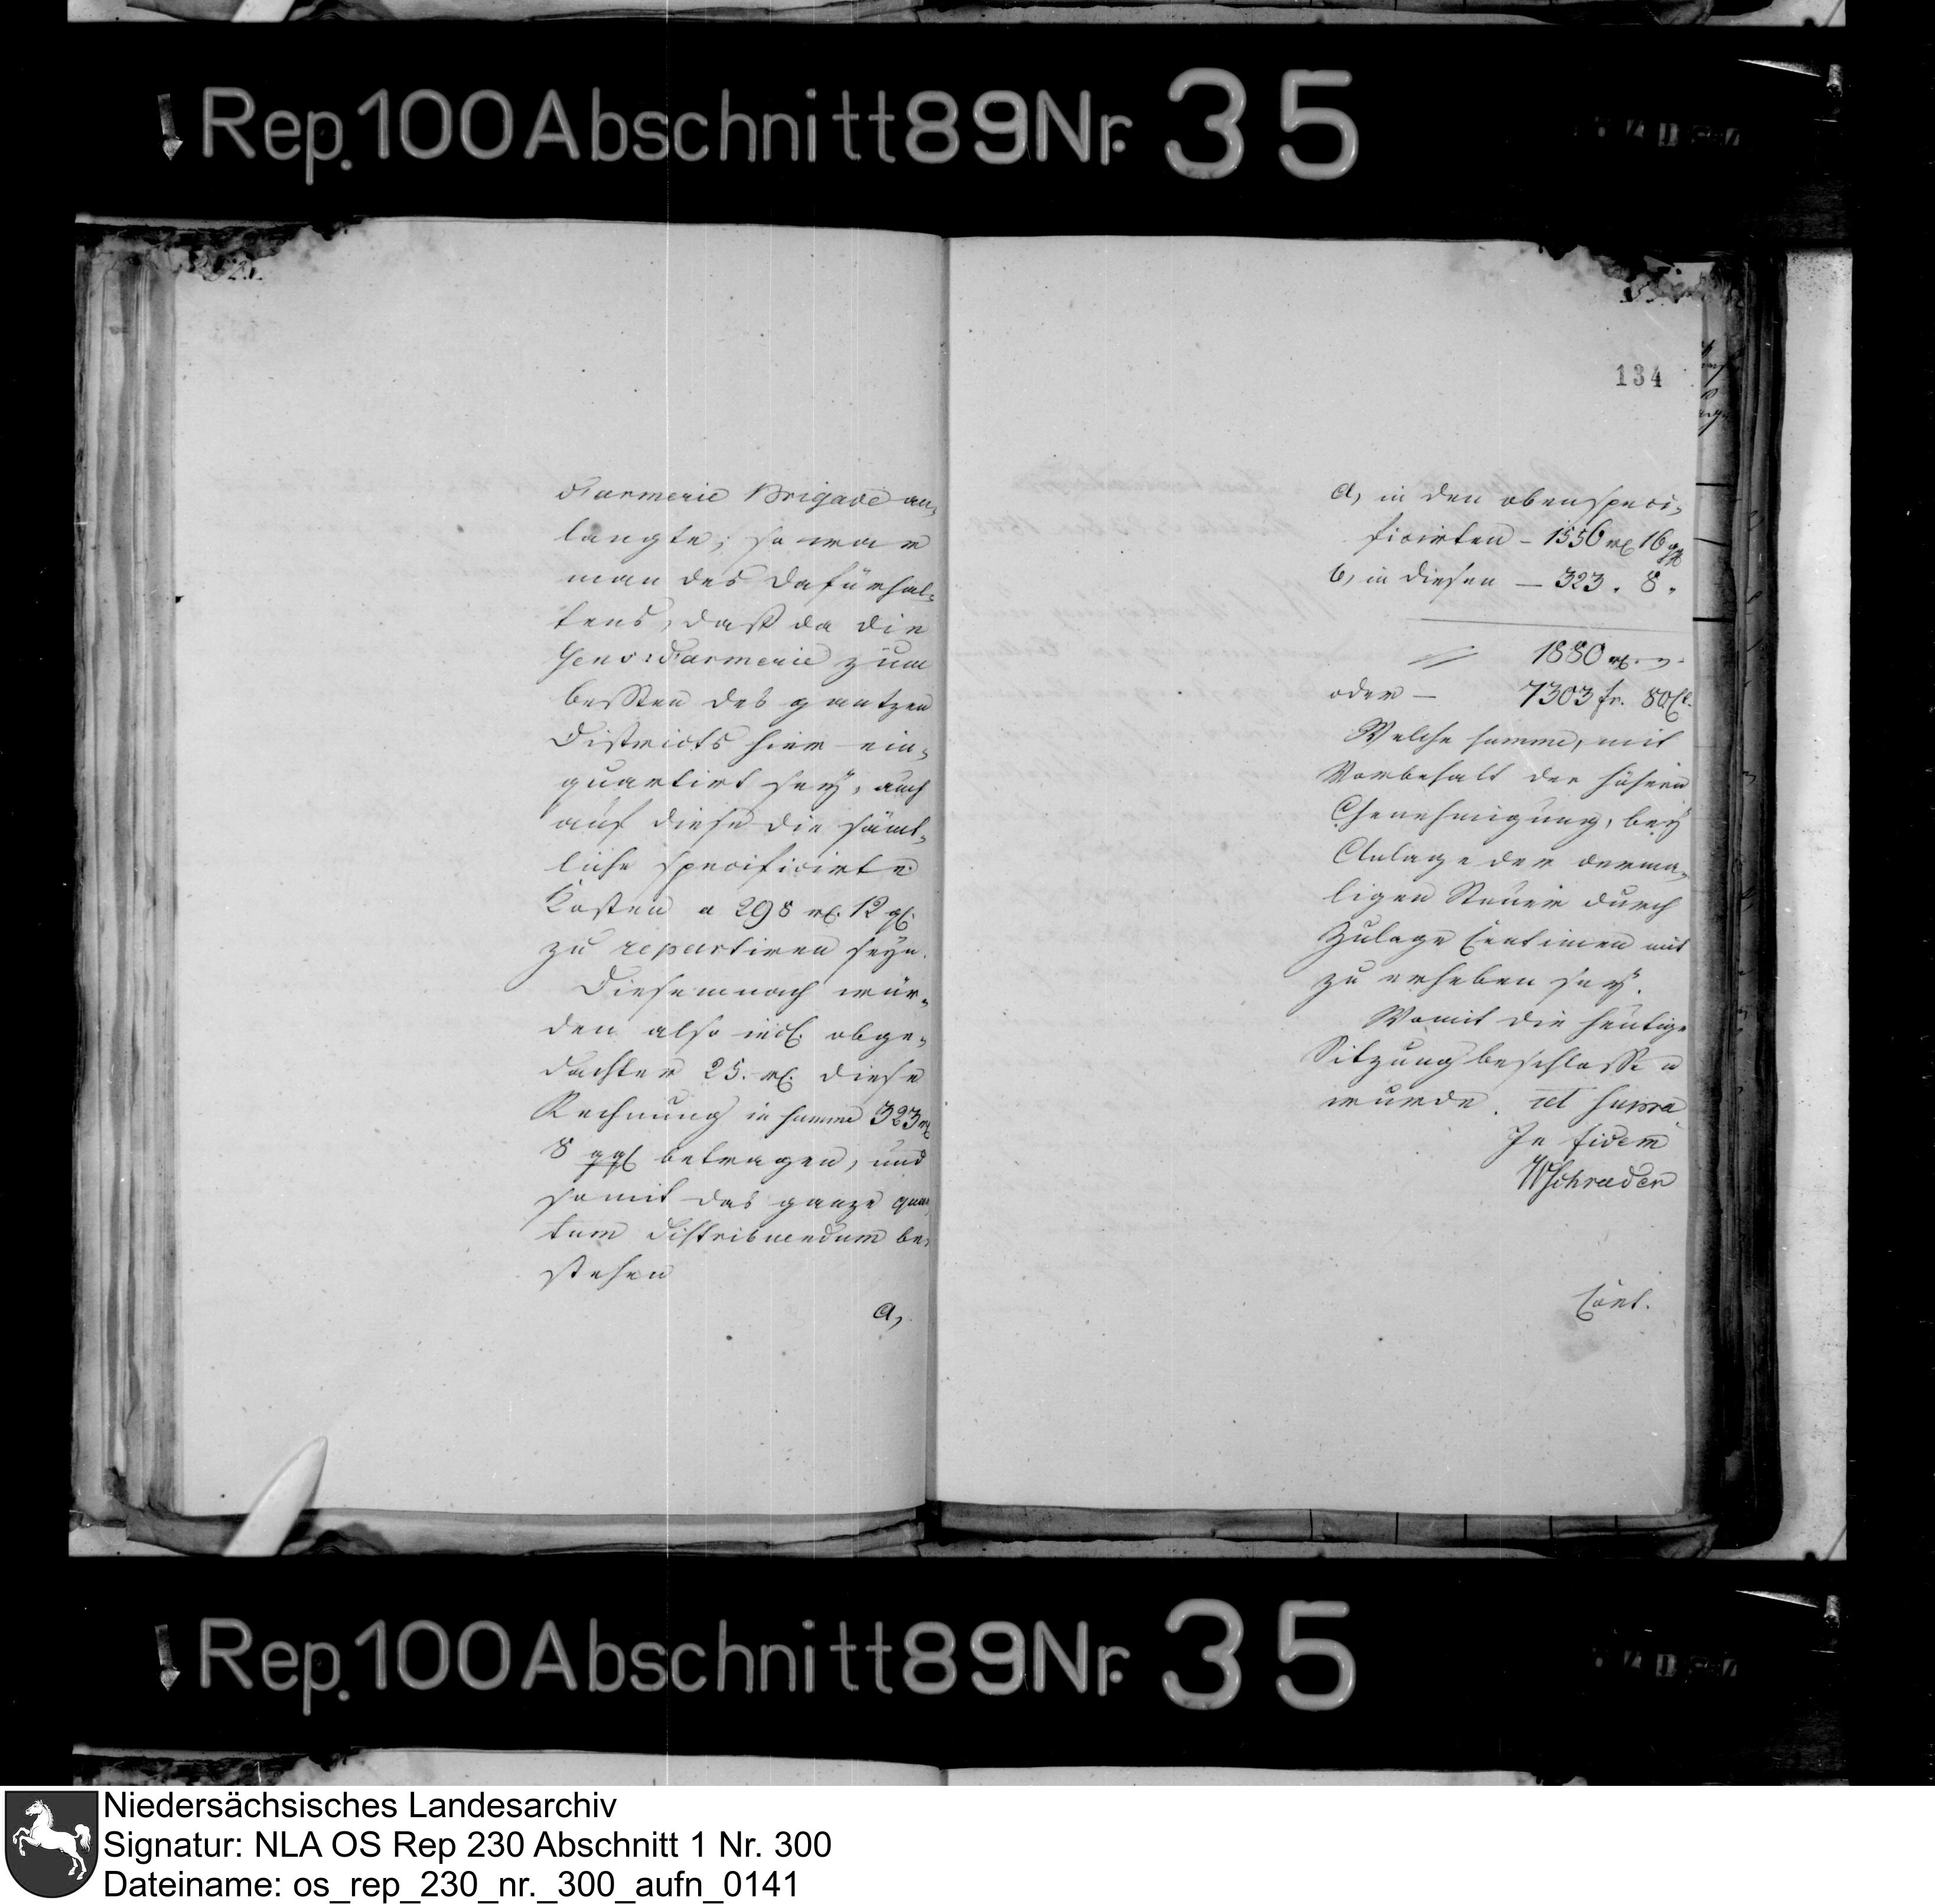 Rep. 100 Abschnitt 89 Nr. 35
134
d'armerie Brigade an-
langte; so war
man des Dafürhal-
tens, daß da die
Gens d'armerie zum
besten des gantzen
Districts hier ein-
quartirt sey, auch
auf diese die sämt-
liche specificirte
Kosten a 298 rt. 12 gl.
zu repartiren seyn.
Diesemnach wür-
den also incl. obge-
dachter 25. rt. diese
Rechnung in summa 323 rt
8 ggl betragen, und
somit das ganze quan-
tum distribuendum be-
stehen
a,
a, in den obenspeci-
ficirten – 1556 rt 16 ggl
b, in diesen – 323. 8.
1880 rt.
oder – 7303 fr. 80 Ct.
Welche summe, mit
Vorbehalt der höhern
Genehmigung, bey
Anlage der derma-
ligen Steuer durch
Zulage Centimen mit
zu erheben sey.
Womit die heutige
Sitzung beschlossen
wurde. ut supra
In fidem
WSchraeder
Rep. 100 Abschnitt 89 Nr. 35
Niedersächsisches Landesarchiv
Signatur: NLA OS Rep 230 Abschnitt 1 Nr. 300
Dateiname: os_rep_230_nr._300_aufn_0141